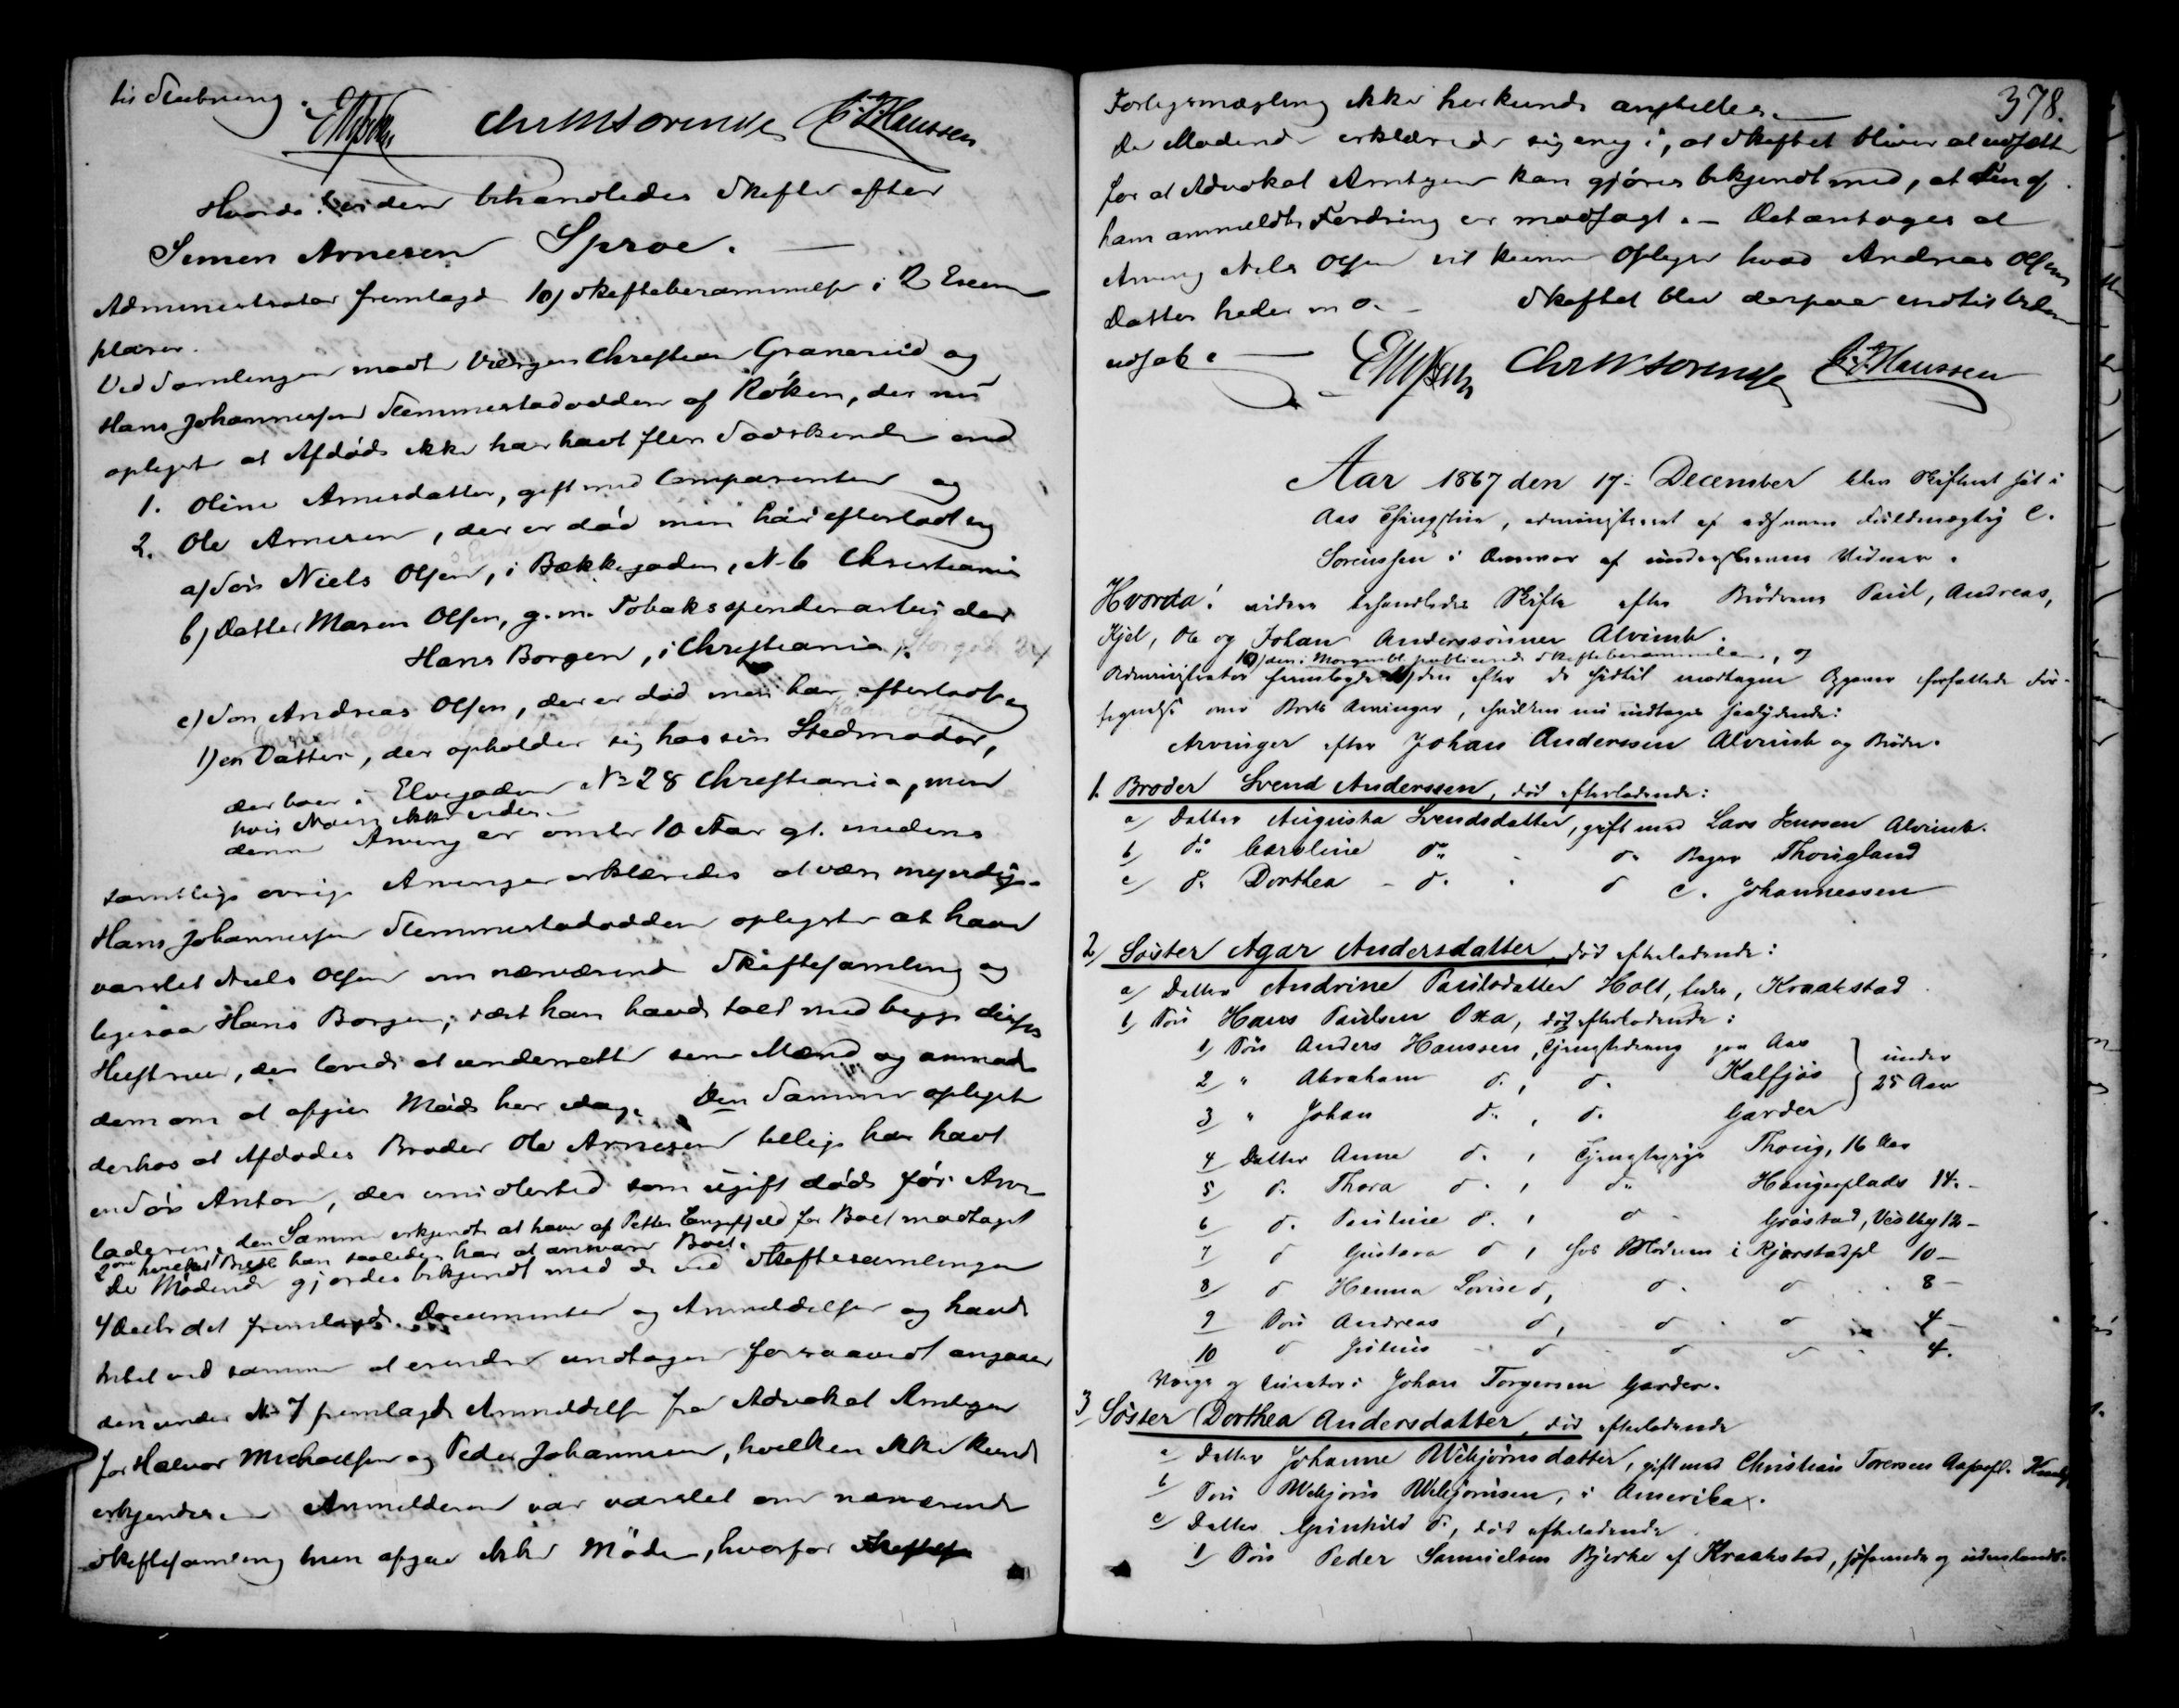 til Slutning.
Chr W Sørensse Hanssen
Hvorda: videre behandledes Skiftet efter
Simen Arnesen Sproe.
Administrator fremlagde 10) Skifteberammelse i 2 Exem-
plarer.
Ved Samlingen mødte Værgen Christian Granerud og
Hans Johannessen Slemmestadodden af Røken, der nu
oplyste at Afdøde ikke har havt flere Sødskende end
1. Oline Arnesdatter, gift med Comparenten og
2. Ole Arnesen, der er død men har efterladt sig
a) Søn Niels Olsen, i Bækkegaden, N. 6 Christiania
b) Datter Maren Olsen, g. m. Tobaksspinderarbeider
Hans Borgen, i Christiania, Storgd. 24
c) Søn Andreas Olsen, der er død men har efterladt sig
1) en Datter, der opholder sig hos sin Stedmoder,
der boer i Elvegaden No 28 Christiania, men
hvis Navn ikke vides.
denne Arving er omtr 10 Aar gl. medens
samtlige øvrige Arvinger erklæredes at være myndige.
Hans Johannessen Slemmestadodden oplyste at have
varslet Niels Olsen om nærværende Skiftesamling og
ligesaa Hans Borgen, idet han havde talt med begge disses
Hustruer, der lovede at underrette sine Mænd og anmode
dem om at afgive Møde her idag. Den Samme oplyste
derhos at Afdødes Broder Ole Arnesen tillige har havt
en Søn Anton, der imidlertid som ugift døde før Arve-
laderen, den Samme erkjendte at have af Petter Engefjeld for Boet modtaget
2 han saaledes har at ansvare Boet.
De Mødende gjordes bekjendt med de ved Skiftesamlingen
4 Decbr det fremlagde Documenter og Anmeldelser og havde
Intet ved samme at erindre undtagen forsaavidt angaaer
den under No 7 fremlagde Anmeldelse fra Advokat Arntzen
for Halvor Michaelsen og Peder Johannesen, hvilken ikke kunde
erkjendes. Anmelderen var varslet om nærværende
Skiftesamling men afgav ikke Møde, hvorfor
378.
Forligsmægling ikke her kunde anstilles.
De Mødende erklærede sig enig i, at Skiftet bliver at udsætte
for at Advokat Arntzen kan gjøres bekjendt med, at den af
ham anmeldte Fordring er modsagt. – Det antoges at
Arving Niels Olsen vil kunne oplyse hvad Andreas Olsens
Datter heder m. v. – Skiftet blev derpaa indtil videre
udsat.
Chr W Sørensse Hanssen
Aar 1867 den 17. December blev Skifteret sat i
Aas Thinghuus, administreret af edsvoren Fuldmægtig C.
Sørenssen i Overvær af underskrevne Vidner.
Hvorda: videre behandledes Skifte efter Brødrene Paul, Andreas,
Kjel, Ole og Johan Anderssønner Alvimb.
10) den i Morgenbl. publicerede Skifteberammelse, og
Administrator fremlagde den efter de hidtil modtagne Opgaver forfattede For-
tegnelse over Boets Arvinger, hvilken nu indtages saalydende:
Arvinger efter Johan Anderssen Alvimb og Brødre.
1. Broder Svend Anderssen, død efterladende:
a) Datter Augusta Svendsdatter, gift med Lars Jenssen Alvimb.
b) do Caroline do – do Bager Thougland
c) do Dorthea – do – do C. Johannessen
2) Søster Agar Andersdatter, død efterladende:
a) Datter Andrine Paulsdatter Holt, Kraakstad
b) Søn Hans Paulsen Oxa, død efterladende:
1) Søn Anders Hanssen, Tjenestedreng paa Aas
2 " Abraham do, do Kalfjøs
3 " Johan do, do Garder
under 25 Aar
4 Datter Anne do, Tjenestepige Thoug, 16 Aar
5 do Thora do, do Haugerplads 14. –
6 do Pauline do, do Grøstad, Vestby 12 –
7 do Gustava do, hos Moderen i Kjærstadpl 10 –
8 do Henna Lovise do, do do 8 –
9 Søn Andreas do, do do 4 –
10 do Julius – do do do 4.
Værge og Curator: Johan Torgersen Garder.
3 Søster Dorthea Andersdatter, død efterladende
a) Datter Johanne Wibjørnsdatter, gift med Christian Torersen
b) Søn Wibjørn Wibjørnsen, i Amerika.
c) Datter Gunhild do, død efterladende
1) Søn Peder Samuelsen Bjerke af Kraakstad, søfarende og udenlands.